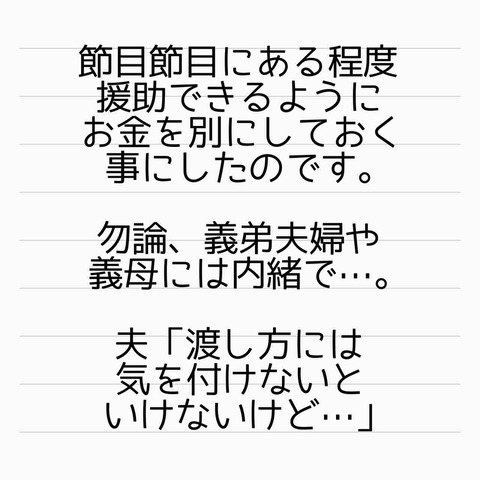 節目節目にある程度
援助できるように
お金を別にしておく
事にしたのです。
勿論、義弟夫婦や
義母には内緒で…。
夫「渡し方には
気を付けないと
いけないけど…」